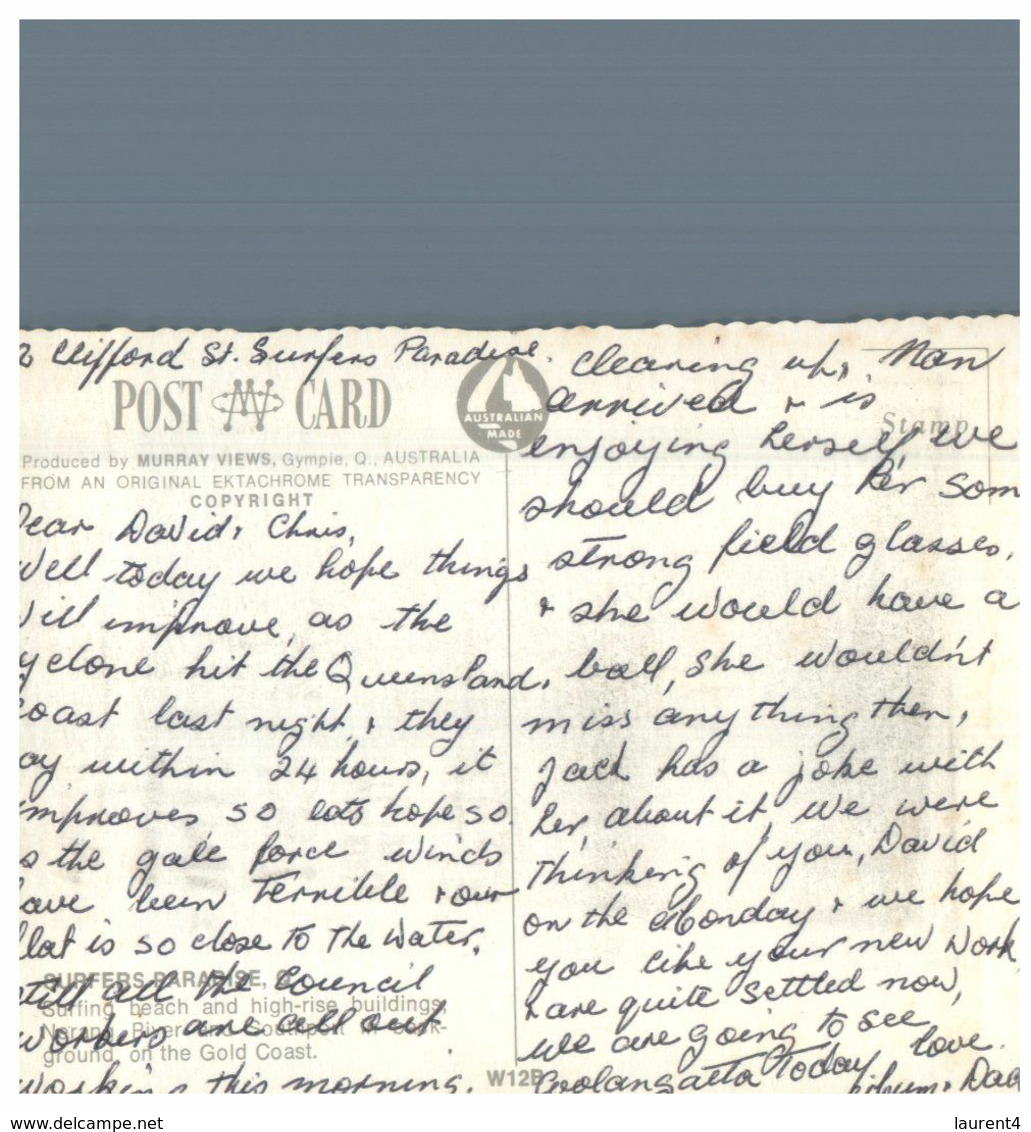 2 Clifford St. Surfers Paradise.
POST CARD
AUSTRALIAN
MADE
Stamp
Produced by MURRAY VIEWS, Gympie, Q., AUSTRALIA
FROM AN ORIGINAL EKTACHROME TRANSPARENCY
COPYRIGHT
ear David & Chris,
Well today we hope things
ill improve, as the
yclone hit the Queensland
oast last night, & they
ay within 24 hours, it
mproves so lets hope so.
s the gale force winds
ave been terrible & our
lat is so close to the water,
till all the Council
workers are all out
working this morning.
SURFERS PARADISE, Q.
Surfing beach and high-rise buildings,
Nerang River and Southport in back-
ground, on the Gold Coast.
W12B
cleaning up, Nan
arrived & is
enjoying herself, we
should buy her som
strong field glasses,
& she would have a
ball, she wouldn't
miss anything then,
Jack has a joke with
her about it, we were
thinking of you, David
on the Monday & we hope
you like your new work,
& are quite settled now,
we are going to see
Coolangatta Today
love
Mum & Dad
www.delcampe.net
laurent4